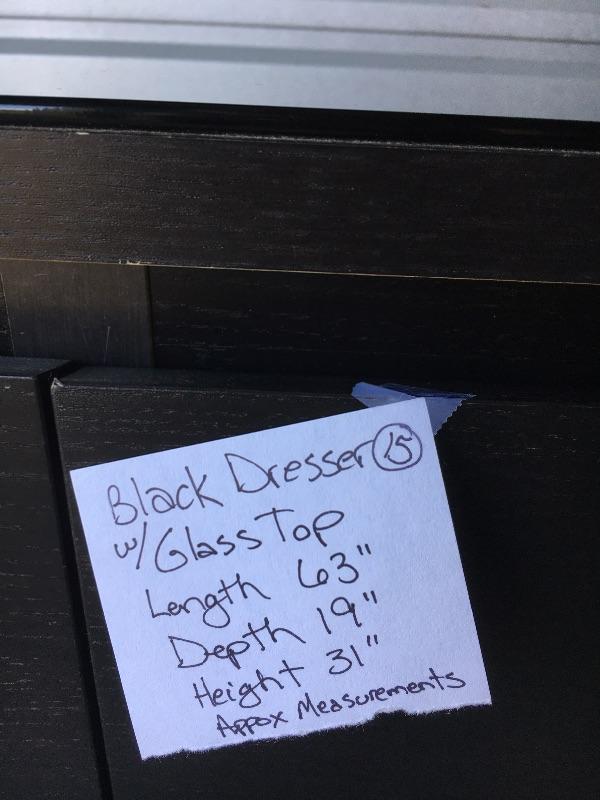 Black Dresser 15
w/Glass Top
Length 63"
Depth 19"
Height 31"
Appox Measurements